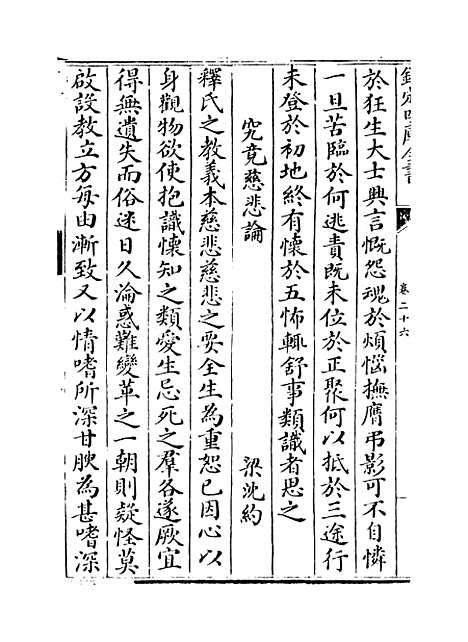 欽定四庫全書
卷二十六
於狂生大士興言慨怨魂於煩惱撫膺弔影可不自憐
一旦苦臨於何逃責既未位於正聚何以抵於三途行
未登於初地終有懷於五怖輒舒事類識者思之
究竟慈悲論
梁沈約
釋氏之教義本慈悲慈悲之要全生為重恕已因心以
身觀物欲使抱識懷知之類愛生忌死之羣各遂厥宜
得無遺失而俗迷日久淪惑難變革之一朝則疑怪莫
啟設教立方每由漸致又以情嗜所深甘腴為甚嗜深